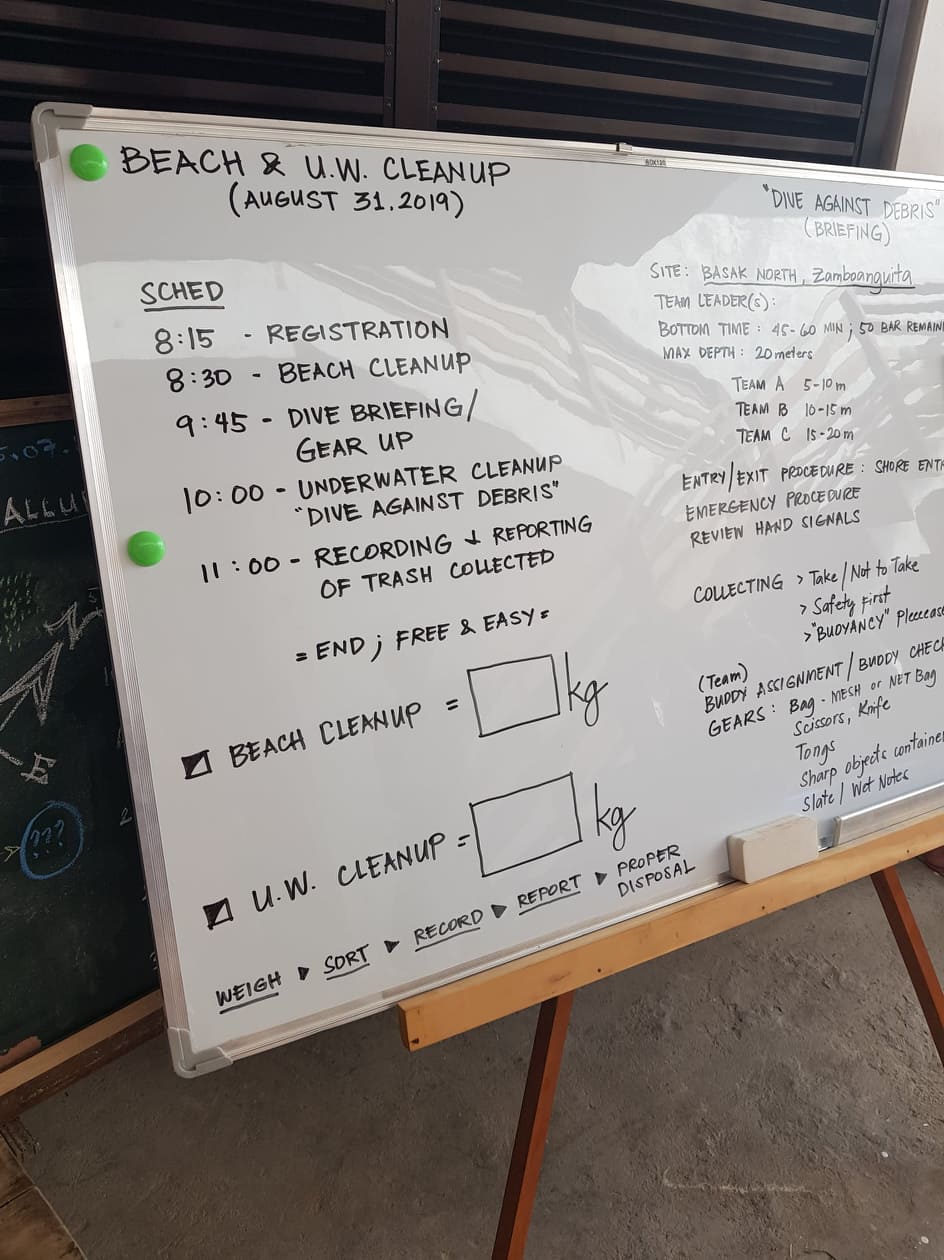 BEACH & U.W. CLEANUP
(AUGUST 31.2019)
SCHED
8:15 - REGISTRATION
8:30 - BEACH CLEANUP
9:45 - DIVE BRIEFING/
GEAR UP
10:00 - UNDERWATER CLEANUP
"DIVE AGAINST DEBRIS"
11:00 - RECORDING & REPORTING
OF TRASH COLLECTED
= END ; FREE & EASY =
BEACH CLEANUP = kg
U.W. CLEANUP = kg
WEIGH ▸ SORT ▸ RECORD ▸ REPORT ▸ PROPER
DISPOSAL
"DIVE AGAINST DEBRIS"
(BRIEFING)
SITE: BASAK NORTH, Zamboanguita
TEAM LEADER(s):
BOTTOM TIME : 45-60 MIN ; 50 BAR REMAIN
MAX DEPTH : 20 meters
TEAM A 5-10 m
TEAM B 10-15 m
TEAM C 15-20 m
ENTRY/EXIT PROCEDURE : SHORE ENT
EMERGENCY PROCEDURE
REVIEW HAND SIGNALS
COLLECTING > Take/Not to Take
> Safety First
> "BUOYANCY" Pleeease
(Team)
BUDDY ASSIGNMENT / BUDDY CHECK
GEARS : Bag - MESH or NET Bag
Scissors, Knife
Tongs
Sharp objects container
Slate / Wet Notes
ALLU
E
???